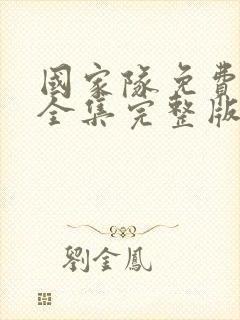 國家隊免費
全集完整版
劉金鳳